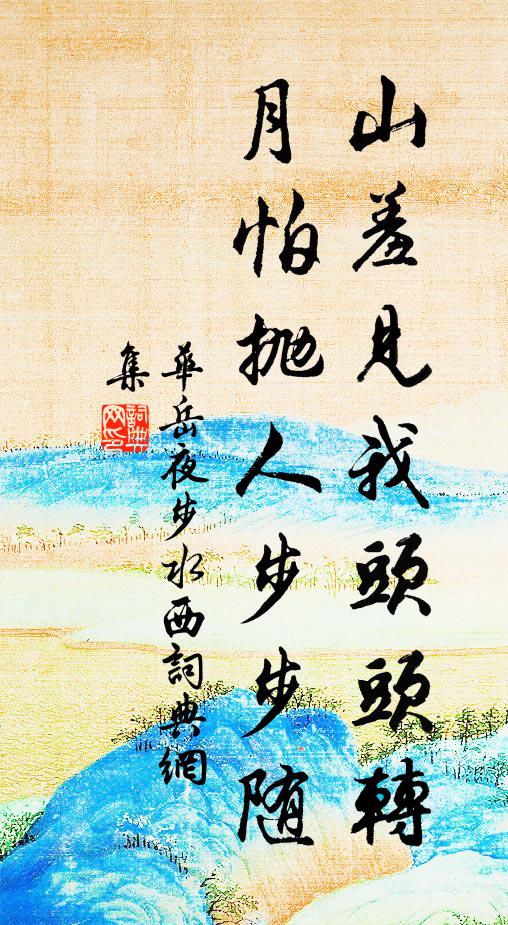 山羞見我頭頭轉
月怕抛人步步随
華岳夜步水西詞典網
集
詞典
网印